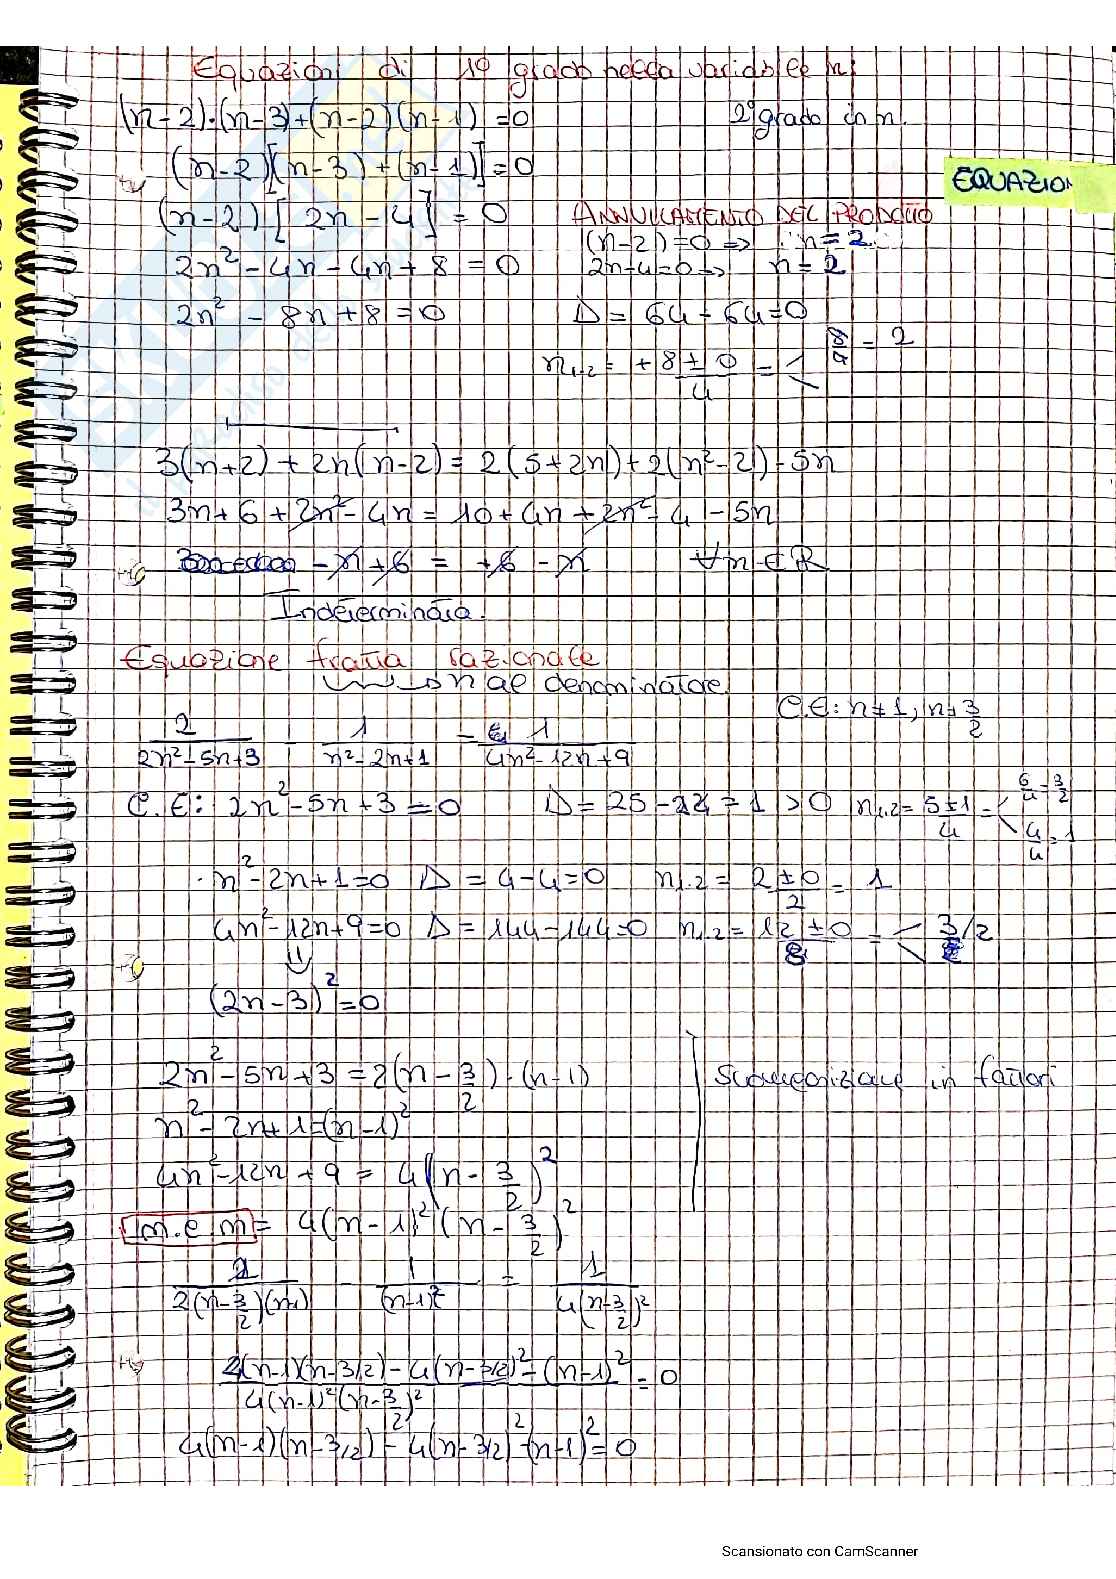 Equazioni di 1º grado nella variabile n:
(n-2)·(n-3)+(n-2)(n-1) =0 2º grado in n.
(n-2)[(n-3)+(n-1)]=0
EQUAZIO
(n-2)[2n-4]=0 ANNULLAMENTO DEL PRODOTTO
(n-2)=0 => n=2
2n²-4n-4n+8=0 2n-4=0 -> n=2
2n²-8n+8=0 Δ= 64-64=0
n1,2= +8±0/4 = < 8/4 = 2
3(n+2)+2n(n-2)=2(5+2n)+2(n²-2)-5n
3n+6+2n²-4n=10+4n+2n²-4-5n
-n+6= +6-n ∀n∈R
Indeterminata.
Equazione fratta razionale
-> n al denominatore.
C.E: n≠1, n≠3/2
2/(2n²-5n+3) - 1/(n²-2n+1) = 1/(4n²-12n+9)
C.E: 2n²-5n+3=0 Δ=25-24=1>0 n1,2= 5±1/4 = < 6/4=3/2 4/4=1
n²-2n+1=0 Δ=4-4=0 n1,2= 2±0/2 = 1
4n²-12n+9=0 Δ=144-144=0 n1,2= 12±0/8 = < 3/2
(2n-3)²=0
2n²-5n+3=2(n-3/2)·(n-1) Scomposizione in fattori
n²-2n+1=(n-1)²
4n²-12n+9=4(n-3/2)²
m.c.m= 4(n-1)²(n-3/2)²
2/(2(n-3/2)(n-1)) - 1/(n-1)² = 1/(4(n-3/2)²)
4(n-1)(n-3/2)-4(n-3/2)²-(n-1)²/4(n-1)²(n-3/2)² =0
4(n-1)(n-3/2)-4(n-3/2)²-(n-1)²=0
Scansionato con CamScanner